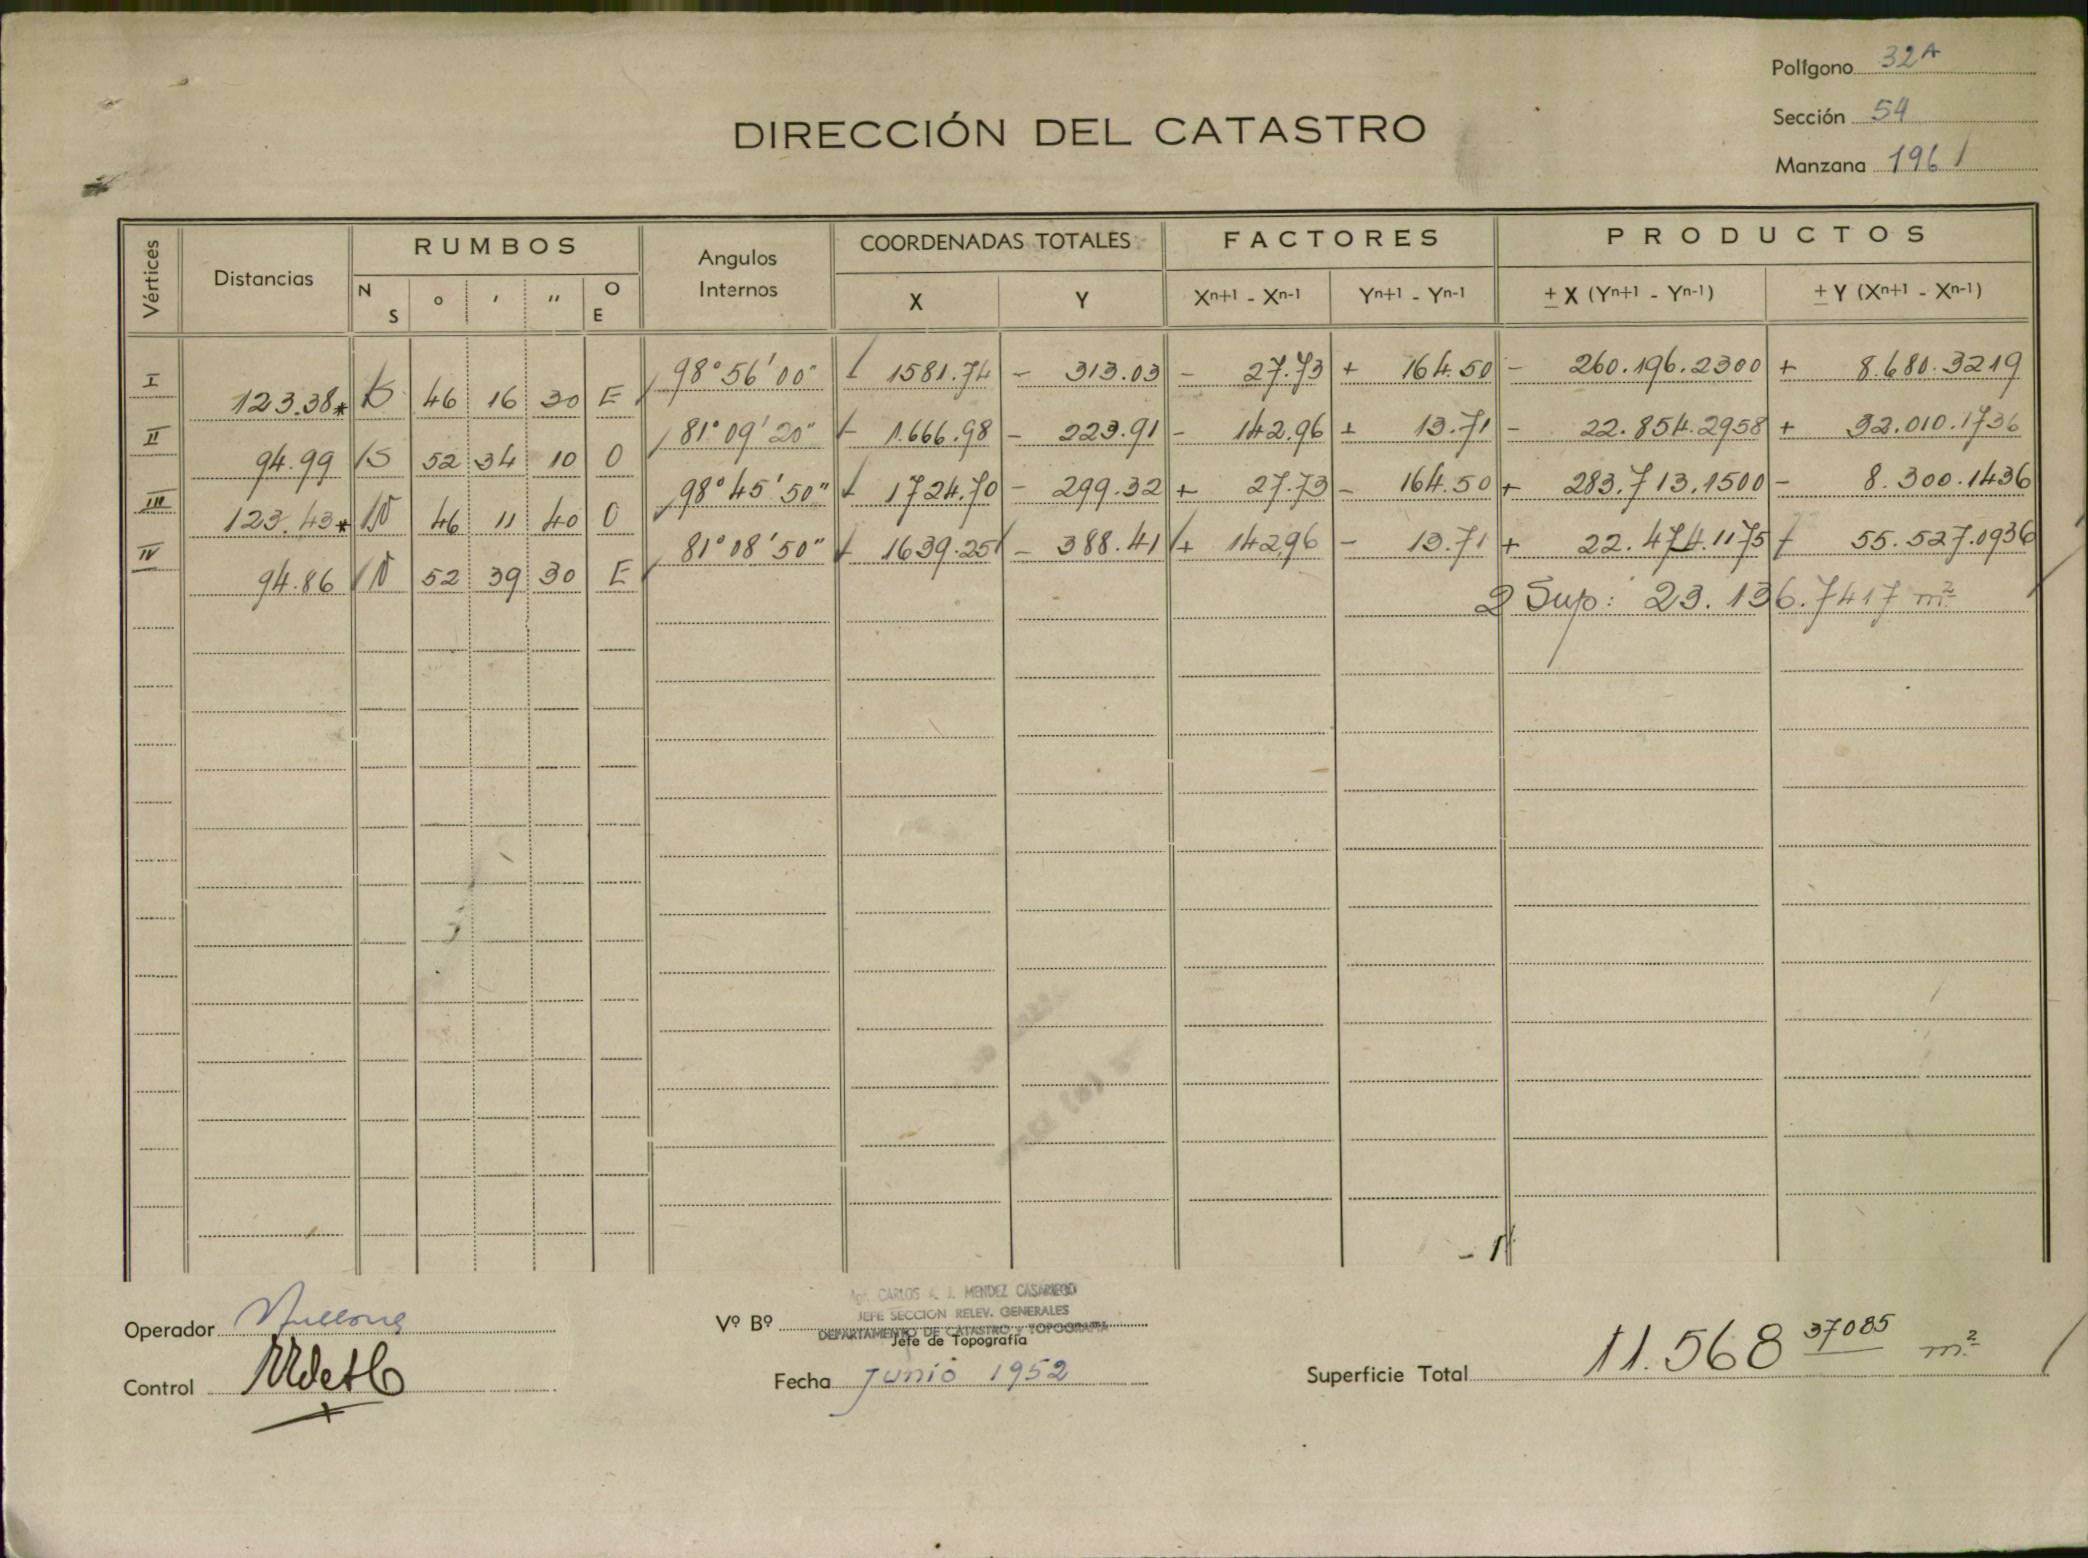 Polígono 32A
Sección 54
Manzana 1961
DIRECCIÓN DEL CATASTRO
Vértices Distancias RUMBOS Angulos Internos COORDENADAS TOTALES FACTORES PRODUCTOS
N S ° ' " O E X Y Xn+1 - Xn-1 Yn+1 - Yn-1 ± X (Yn+1 - Yn-1) ± Y (Xn+1 - Xn-1)
I 98°56'00" 1581.74 - 313.03 - 27.73 + 164.50 - 260.196.2300 + 8.680.3219
123.38* S 46 16 30 E
II 81°09'20" + 1.666.98 - 223.91 - 142.96 + 13.71 - 22.854.2958 + 32.010.1736
94.99 S 52 34 10 O
III 98°45'50" + 1724.70 - 299.32 + 27.73 - 164.50 + 283.713.1500 - 8.300.1436
123.43* N 46 11 40 O
IV 81°08'50" + 1639.25 - 388.41 + 142.96 - 13.71 + 22.474.1175 - 55.527.0936
94.86 N 52 39 30 E
2 Sup: 23.136.7417 m²
- 1
Operador
Control
Vº Bº
CARLOS A. J. MENDEZ CASARIEGO
JEFE SECCION RELEV. GENERALES
DEPARTAMENTO DE CATASTRO Y TOPOGRAFIA
Jefe de Topografía
Fecha Junio 1952
Superficie Total 11.568 37085 m²